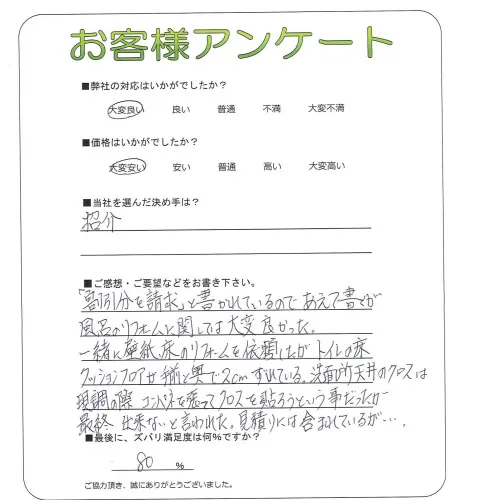 お客様アンケート
■弊社の対応はいかがでしたか?
大変良い 良い 普通 不満 大変不満
■価格はいかがでしたか?
大変安い 安い 普通 高い 大変高い
■当社を選んだ決め手は?
紹介
■ご感想・ご要望などをお書き下さい。
「割引分を請求」と書かれているので あえて書くが
風呂のリフォームに関しては大変良かった。
一緒に壁紙、床のリフォームを依頼したが トイレの床
クッションフロアが 手前と奥で2cmずれている。洗面所天井のクロスは
現調の際 コンパネを張ってクロスを貼ろうという事だったが
最終 出来ないと言われた。見積りには含まれているが…。
■最後に、ズバリ満足度は何%ですか?
80 %
ご協力頂き、誠にありがとうございました。